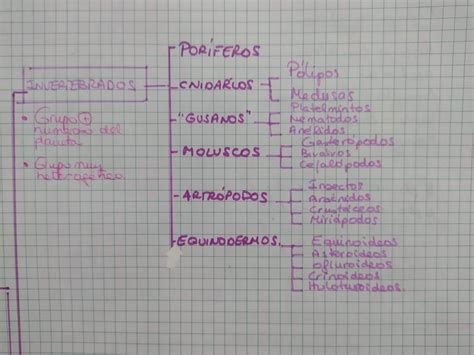 PORÍFEROS
INVERTEBRADOS
• Grupo +
numeroso del
planeta
• Grupo muy
heterogéneo
CNIDARIOS
Pólipos
Medusas
"GUSANOS"
Platelmintos
Nematodos
Anélidos
MOLUSCOS
Gasterópodos
Bivalvos
Cefalópodos
ARTRÓPODOS
Insectos
Arácnidos
Crustáceos
Miriápodos
EQUINODERMOS
Equinoideos
Asteroideos
Ofiuroideos
Crinoideos
Holoturoideos